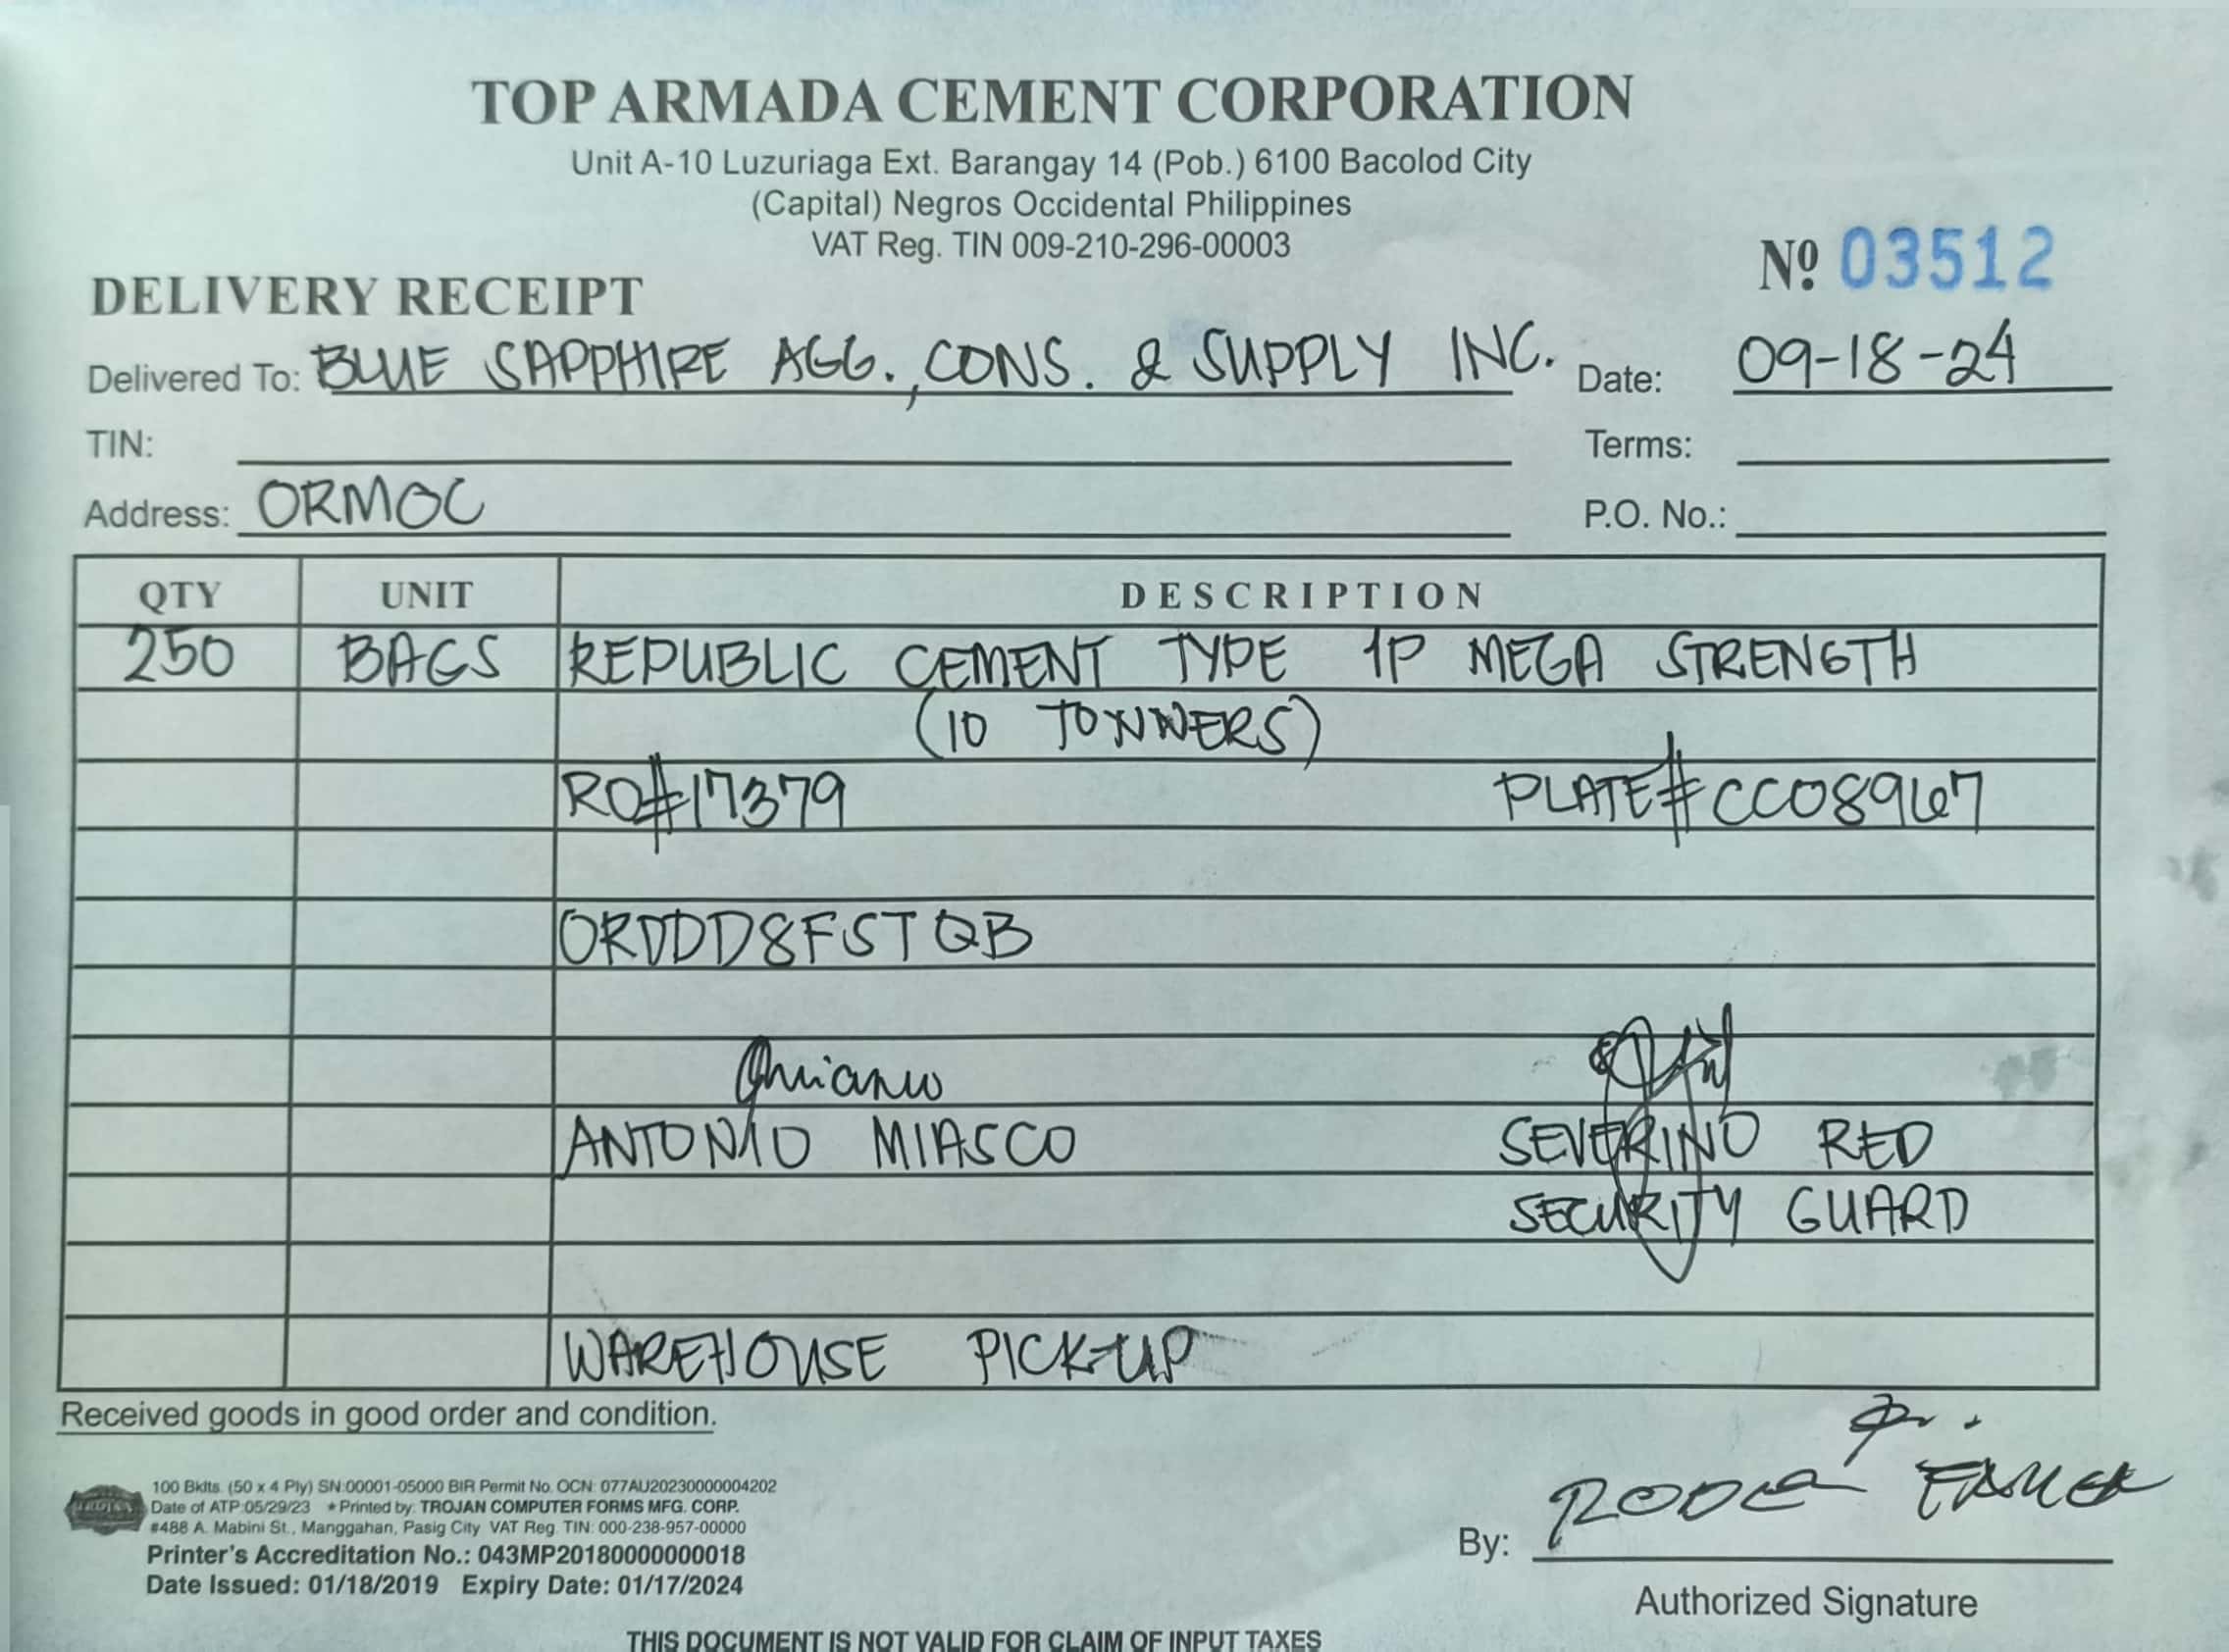 TOP ARMADA CEMENT CORPORATION
Unit A-10 Luzuriaga Ext. Barangay 14 (Pob.) 6100 Bacolod City
(Capital) Negros Occidental Philippines
VAT Reg. TIN 009-210-296-00003
Nº 03512
DELIVERY RECEIPT
Delivered To: BLUE SAPPHIRE AGG., CONS. & SUPPLY INC. Date: 09-18-24
TIN: Terms:
Address: ORMOC P.O. No.:
QTY UNIT DESCRIPTION
250 BAGS REPUBLIC CEMENT TYPE 1P MEGA STRENGTH
(10 TONNERS)
RO#17379 PLATE#CCO8967
ORDDD8FSTQB
ANTONIO MIASCO SEVERINO RED
SECURITY GUARD
WAREHOUSE PICK-UP
Received goods in good order and condition.
100 Bklts. (50 x 4 Ply) SN:00001-05000 BIR Permit No. OCN: 077AU20230000004202
Date of ATP:05/29/23 ★Printed by: TROJAN COMPUTER FORMS MFG. CORP.
#488 A. Mabini St., Manggahan, Pasig City VAT Reg. TIN: 000-238-957-00000
Printer's Accreditation No.: 043MP20180000000018
Date Issued: 01/18/2019 Expiry Date: 01/17/2024
By:
Authorized Signature
THIS DOCUMENT IS NOT VALID FOR CLAIM OF INPUT TAXES